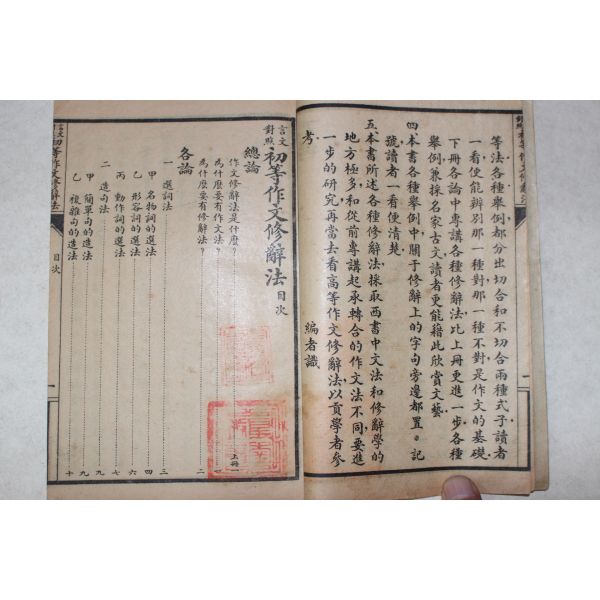 等法各種舉例都分出切合和不切合兩種式子讀者
一看便能辨別那一種對那一種不對是作文的基礎
下冊各論中專講各種修辭法比上冊更進一步各種
舉例兼採名家古文讀者更能藉此欣賞文藝
四 本書各種舉例中關于修辭上的字句旁邊都置。記
號讀者一看便清楚
五 本書所述各種修辭法採取西書中文法和修辭學的
地方極多和從前專講起承轉合的作文法不同要進
一步的研究再當去看高等作文修辭法以貢學者參
考
編者識
言文對照 初等作文修辭法 目次
上冊
總論
作文修辭法是什麼?
為什麼要有作文法? 一
為什麼要有修辭法? 二
各論
一 選詞法 三
甲 名物詞的選法 四
乙 形容詞的選法 六
丙 動作詞的選法 七
二 造句法 九
甲 簡單句的造法 九
乙 複雜句的造法 十
言文對照 初等作文修辭法 目次 一